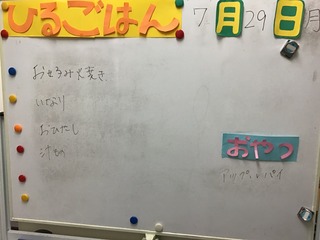 ひるごはん 7月29日 月
おせろみ焼き
いなり
おひたし
汁もの
おやつ
アップルパイ